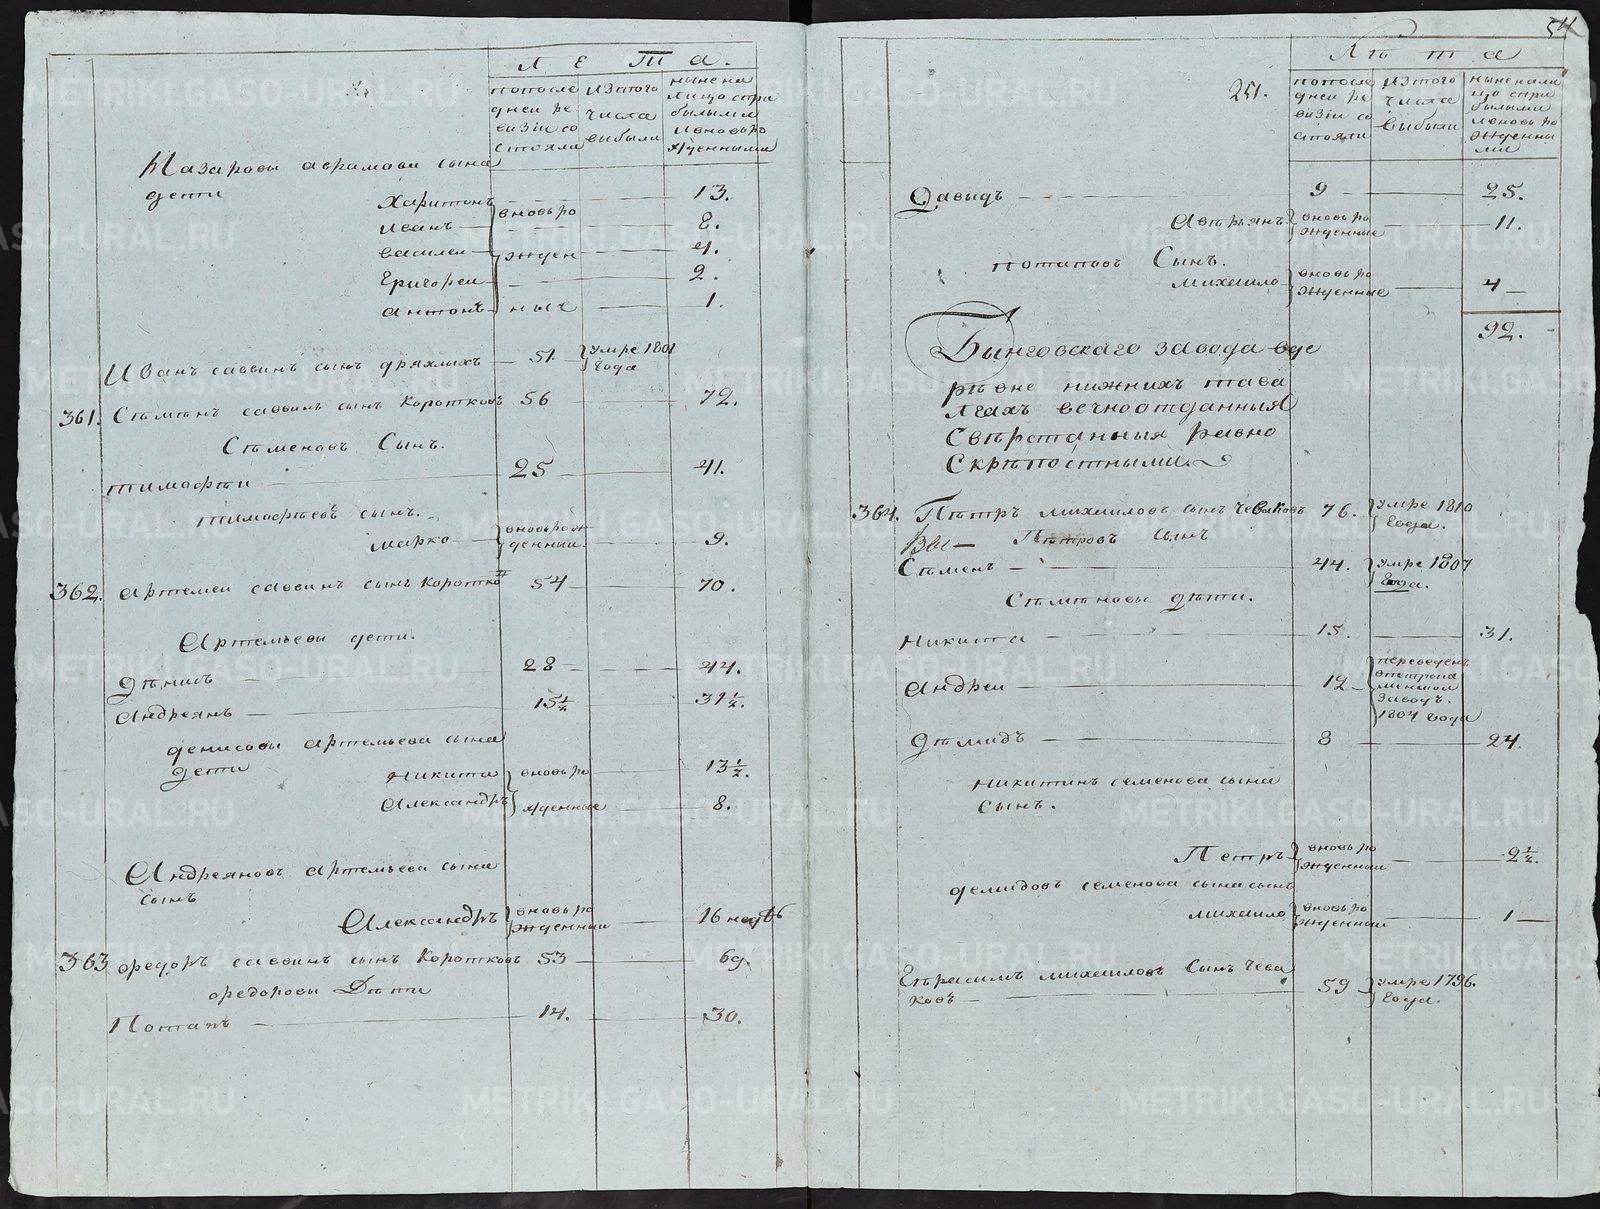 Л Е Т А.
попосле
дней ре
визiи со
стояли
изтого
числа
выбыли
ныне на
лицо спри
былыми
ивновь ро
жденными
Назаровы аврамова сына
дети
Харитонъ 13.
Иванъ вновь ро 8.
василеи жден 4.
Григореи 2.
антонъ ныя 1.
Иванъ саввинъ сынъ дряхлыхъ 51. умре 1801
года
361. Сѣмѣнъ саввинъ сынъ коротковъ 56 72.
Сѣменовъ Сынъ.
тимофѣи 25 41.
тимофѣевъ сынъ.
марко вновь рож
денный. 9.
362. артемеи саввинъ сынъ коротко 54 70.
Артемьевы дети.
Дѣнисъ 28 44.
Андреянъ 15½ 31½.
денисовы артемьева сына
дети
никита вновь ро 13½.
Александръ жденные 8.
Андреяновъ артемьева сына
сынъ
Александръ вновь ро
жденный 16 недѣ
363 федоръ саввинъ сынъ коротковъ 53 69.
федоровы Дѣти
Потапъ 14. 30.
54
251.
Лѣта
попосле
дней ре
визiи со
стояли
изтого
числа
выбыли
ныне нали
цо спри
былыми
ивновь ро
жденны
ми
Давыдъ 9 25.
Аверьянъ вновь ро
жденные 11.
потаповъ Сынъ.
михаило вновь ро
жденные 4
92.
Бынговскаго завода вде
рѣвне нижнихъ тава
лгахъ вечноотданныя
Свѣрстанныя равно
Скрѣпостными.
364. Пѣтръ михаиловъ сынъ чеваковъ 76. умре 1810
года.
Вы Пѣтровъ сынъ
Сѣменъ 44. умре 1807
года.
Сѣмѣновы дѣти.
Никита 15. 31.
Андреи 12 переведенъ
впетрока
менской
заводъ.
1804 года
Дѣмидъ 8 24.
никитинъ семенова сына
сынъ.
Петръ вновь ро
жденный 2½.
демидовъ семенова сына сынъ
михаило вновь ро
жденный 1
Гѣрасимъ михаиловъ Сынъ чева
ковъ 59 умре 1796.
года.
METRIKI.GASO-URAL.RU